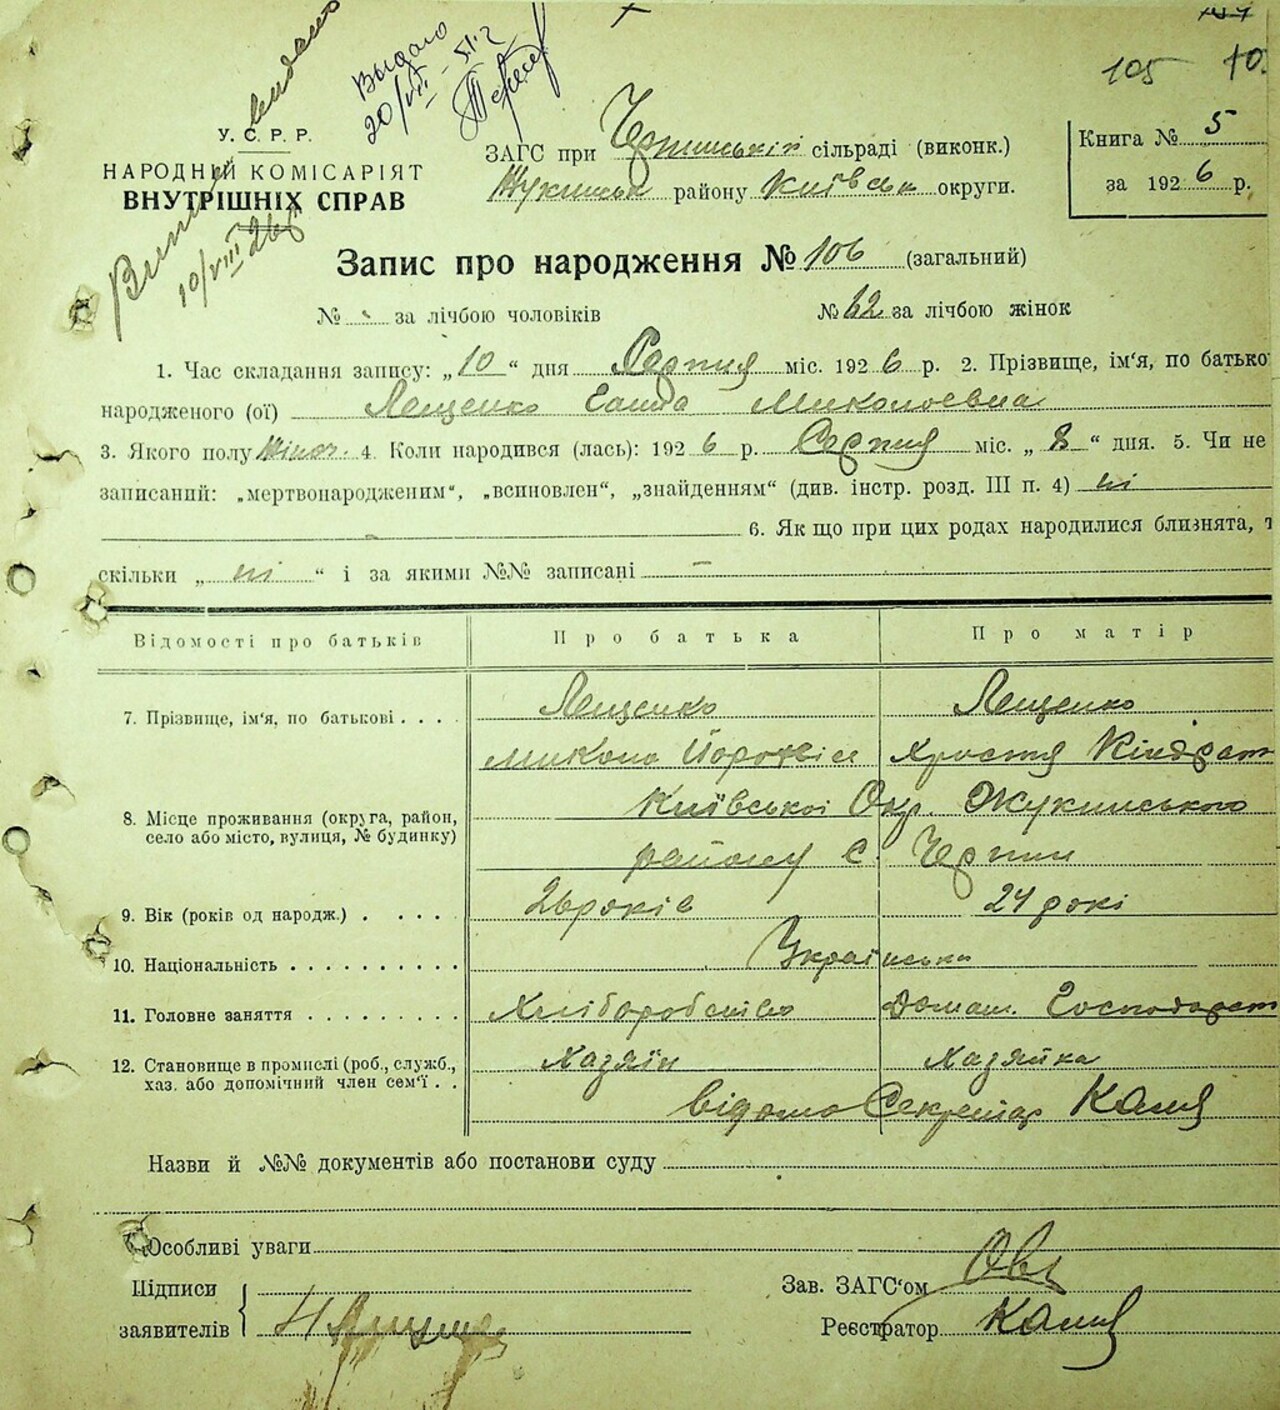 105
Видано
20/VII - 51 г
Виписку видано
10/VIII 26 р
У. С. Р. Р.
НАРОДНИЙ КОМІСАРІЯТ
ВНУТРІШНІХ СПРАВ
ЗАГС при Чернинській сільраді (виконк.)
Жукинськ району Київськ округи.
Книга № 5
за 1926 р.
Запис про народження № 106 (загальний)
№ за лічбою чоловіків № 62 за лічбою жінок
1. Час складання запису: „10“ дня Серпня міс. 1926 р. 2. Прізвище, ім‘я, по батько
народженого (ої) Лещенко Ганна Миколоевна
3. Якого полу Жіноч. 4. Коли народився (лась): 1926 р. Серпня міс. „8“ дня. 5. Чи не
записаний: „мертвонародженим“, „всиновлен“, „знайденням“ (див. інстр. розд. III п. 4) ні
6. Як що при цих родах народилися близнята, т
скільки „ні“ і за якими №№ записані —
Відомості про батьків Про батька Про матір
7. Прізвище, ім‘я, по батькові . . . . Лещенко Лещенко
Микола Христя Кіндрат
8. Місце проживання (округа, район, село або місто, вулиця, № будинку) Київської Окр. Жукинського
району с. Чернин
9. Вік (років од народж.) . . . . 26 років 24 рокі
10. Національність . . . . . . . . . . Українська
11. Головне заняття . . . . . . . . . Хліборобство Домаш. Господарст
12. Становище в промислі (роб., служб., хаз. або допомічний член сем‘ї . . Хазяїн Хазяйка
відомо Секретар
Назви й №№ документів або постанови суду
Особливі уваги
Підписи
заявителів
Зав. ЗАГС‘ом
Реєстратор